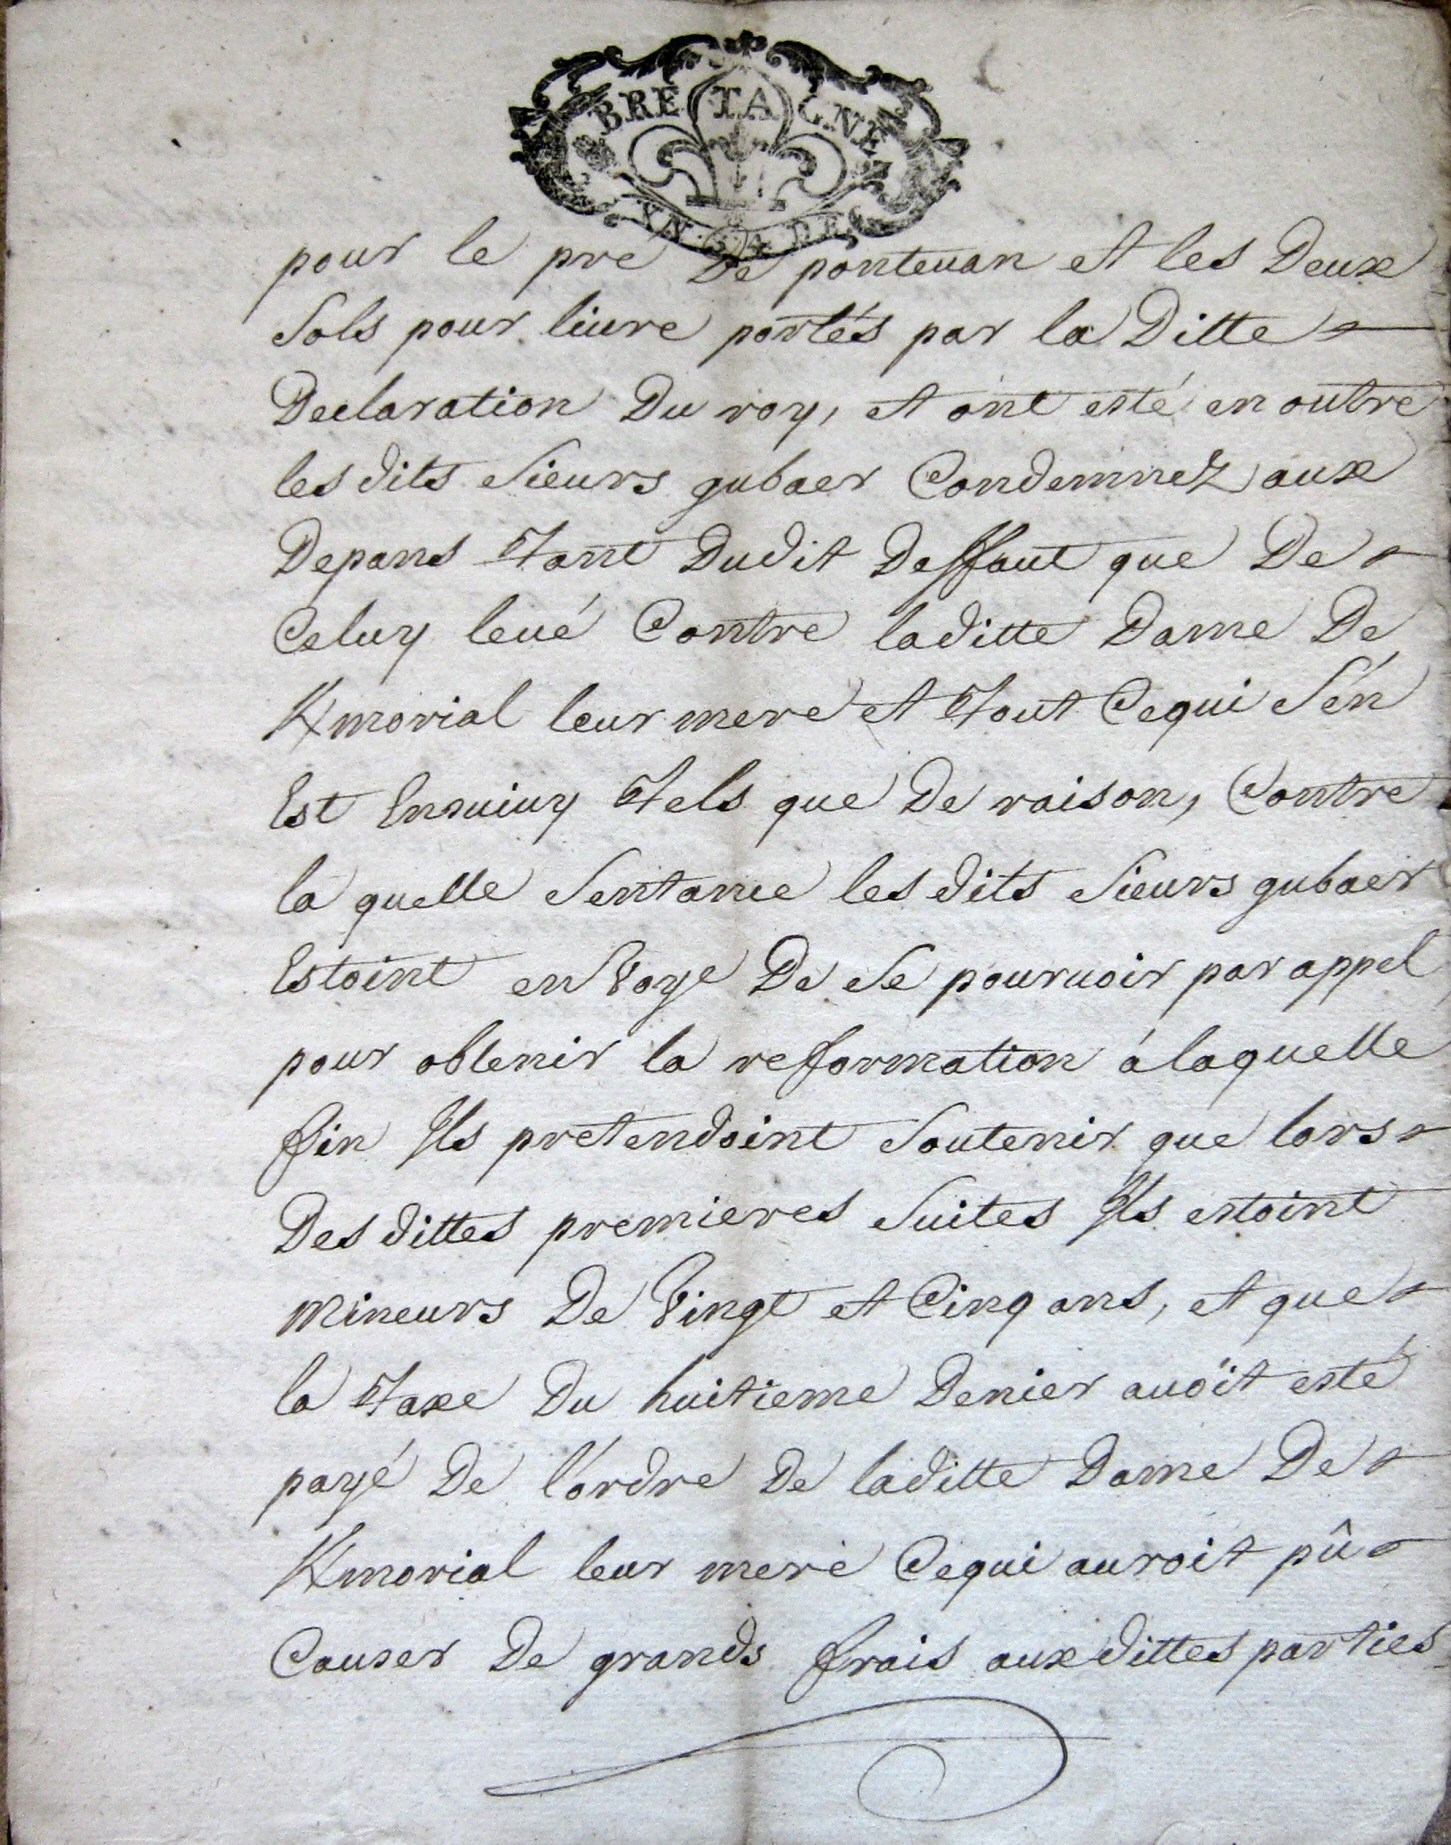 BRETAGNE
VN. S. 4. DE.
pour le pré De pontevan et les Deux
Sols pour liure portés par la Ditte
Declaration Du roy, et ont esté en outre
les dits Sieurs gubaer Condemnez aux
Depans Tant Dudit Deffaut que De
Celuy leué Contre laditte Dame De
Kmorial leur mere et Tout Cequi S'én
Est Ensuiuy Tels que De raison, Contre
la quelle Sentance les dits Sieurs gubaer
Estoint en Voye De Se pouruoir par appel
pour obtenir la reformation á laquelle
fin Ils pretendoint Soutenir que lors
Des dittes premieres Suites Ils estoint
Mineurs De Vingt et Cinq ans, et que
la Taxe Du huitieme Denier auoit esté
payé De l'ordre De laditte Dame De
Kmorial leur mere Cequi auroit pû
Causer De grands frais aux dittes parties